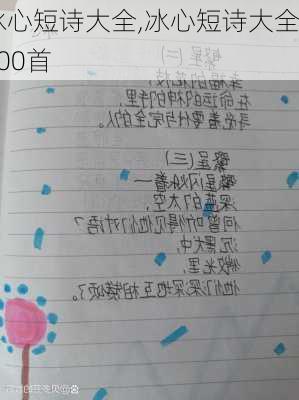 冰心短诗大全,冰心短诗大全
00首
繁星(二)
幸福的花枝,
在命运的神的手里,
寻觅着要付与完全的人。
繁星(三)
繁星闪烁着一
深蓝的太空,
何曾听得见他们对语?
沉默中,
微光里,
他们深深地互相赞颂了。